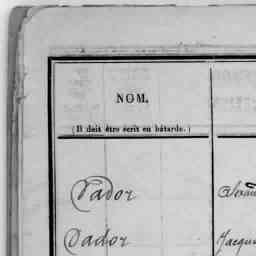 NOM.
(Il doit être écrit en bâtarde.)
Vador
Dador